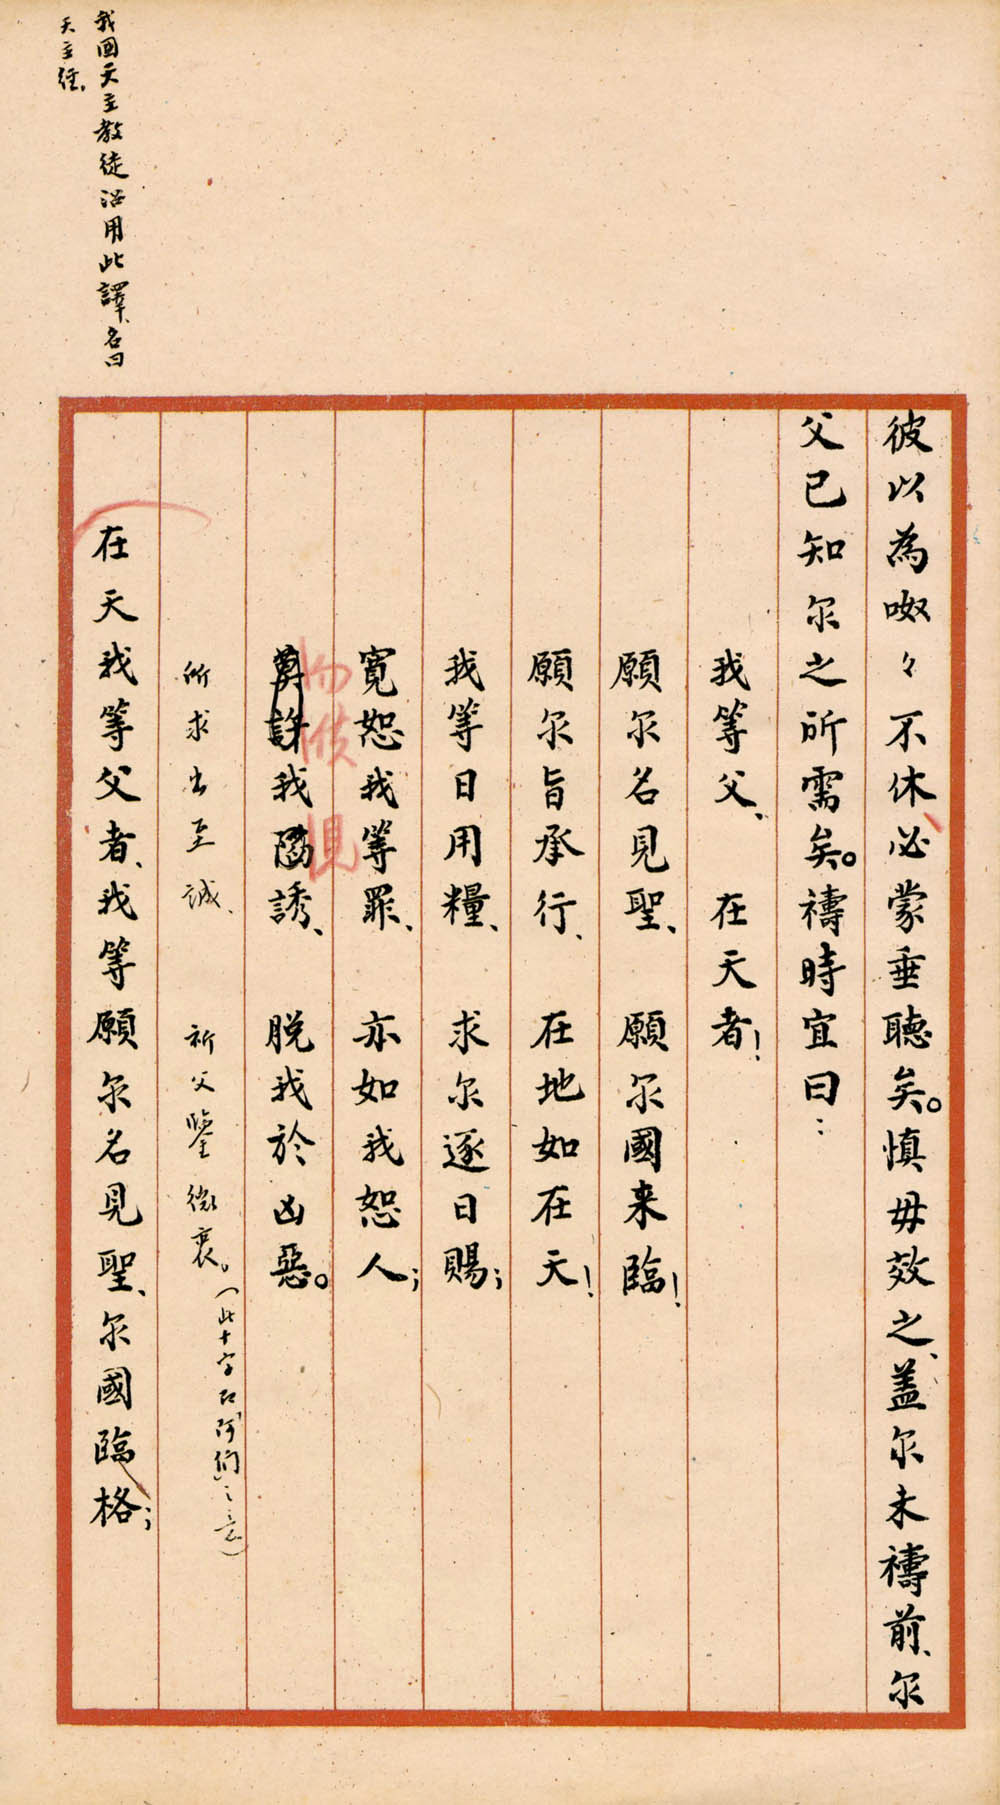 彼以為呶々不休必蒙垂聽矣。慎毋效之、盖尔未禱前、尔
父已知尔之所需矣。禱時宜曰：
我等父、在天者！
願尔名見聖、願尔國来臨！
願尔旨承行、在地如在天！
我等日用糧、求尔逐日賜；
寬恕我等罪、亦如我恕人；
勿俟
見
許我陷誘、脱我於凶惡。
所求出至誠、祈父鑒微衷。（此十字即「阿們」之意）
在天我等父者、我等願尔名見聖、尔國臨格；
我國天主教徒沿用此譯、名曰
天主經。